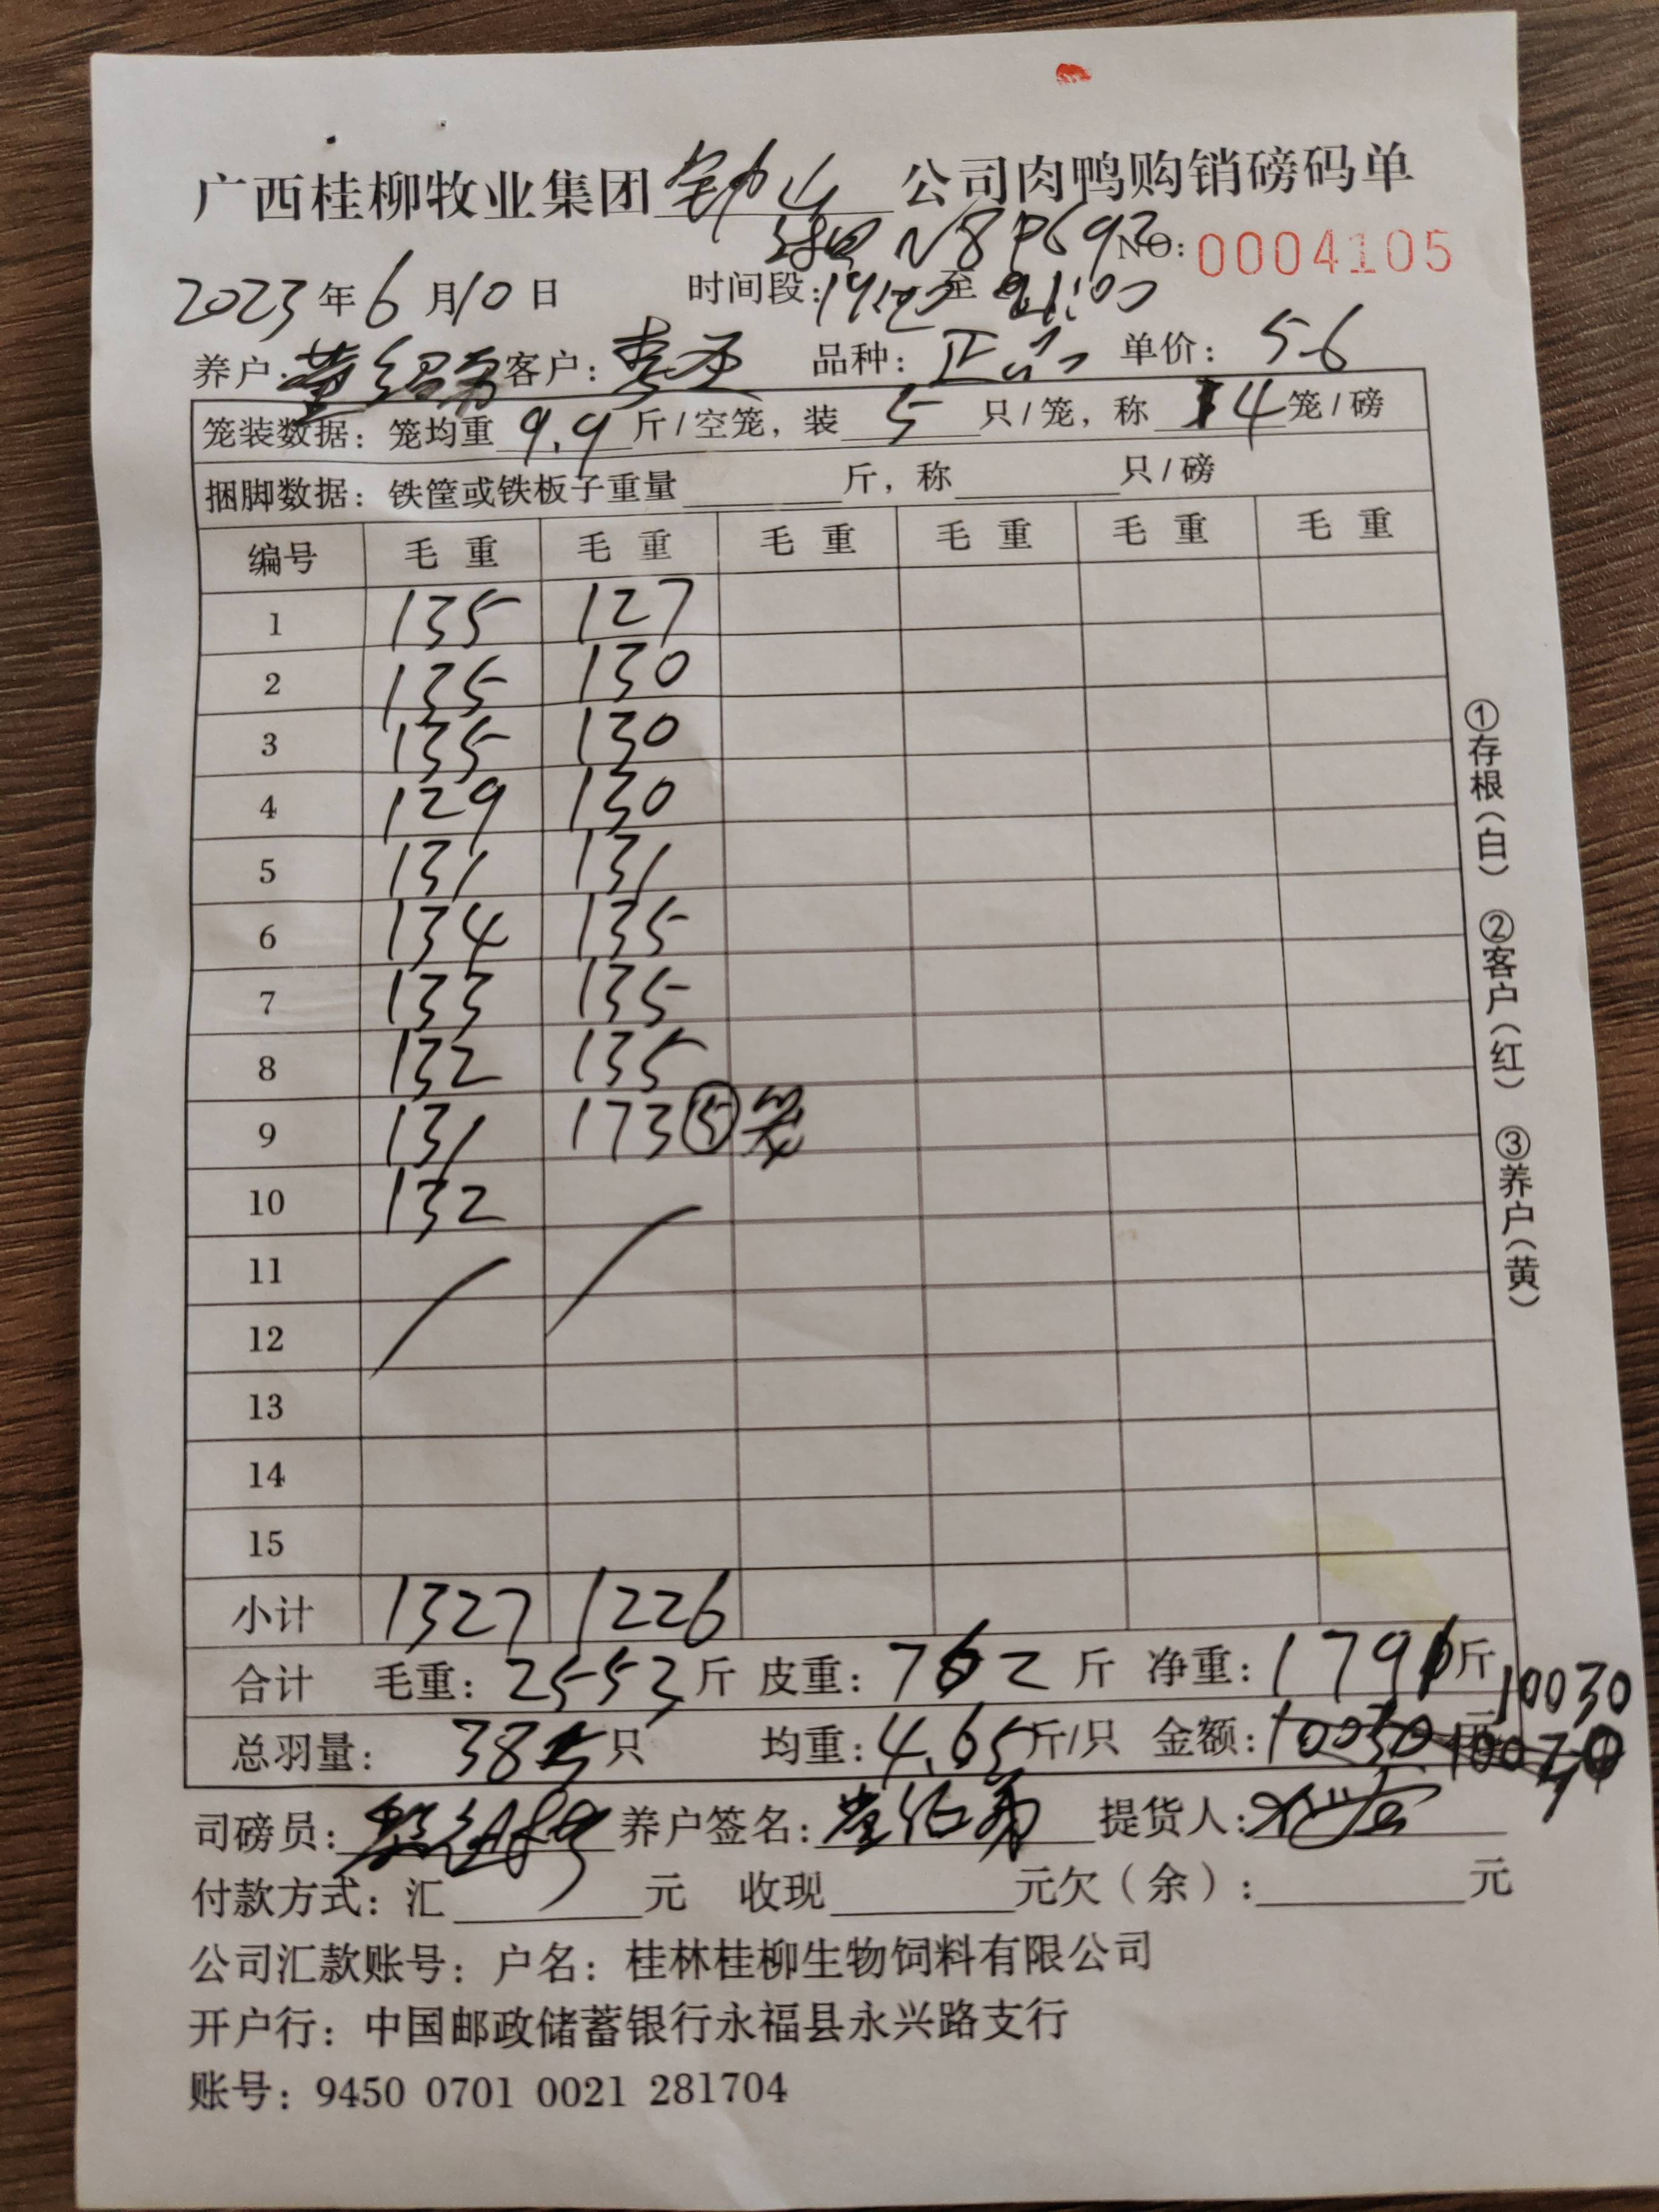 广西桂柳牧业集团 钟山 公司肉鸭购销磅码单
NO: 0004105
2023年6月10日 时间段: 至 21:00
养户: 客户: 品种: 正品 单价: 5.6
笼装数据: 笼均重 9.9 斤/空笼, 装 5 只/笼, 称 4 笼/磅
捆脚数据: 铁筐或铁板子重量 斤, 称 只/磅
编号 毛重 毛重 毛重 毛重 毛重 毛重
1 135 127
2 135 130
3 135 130
4 129 130
5 131 131
6 134 135
7 133 135
8 132 135
9 131 173 ⑤笼
10 132
11
12
13
14
15
小计 1327 1226
合计 毛重: 2553斤 皮重: 762斤 净重: 1791斤
10030
总羽量: 385只 均重: 4.65斤/只 金额: 10030元
司磅员: 养户签名: 提货人:
付款方式: 汇 元 收现 元欠(余): 元
公司汇款账号: 户名: 桂林桂柳生物饲料有限公司
开户行: 中国邮政储蓄银行永福县永兴路支行
账号: 9450 0701 0021 281704
①存根(白) ②客户(红) ③养户(黄)